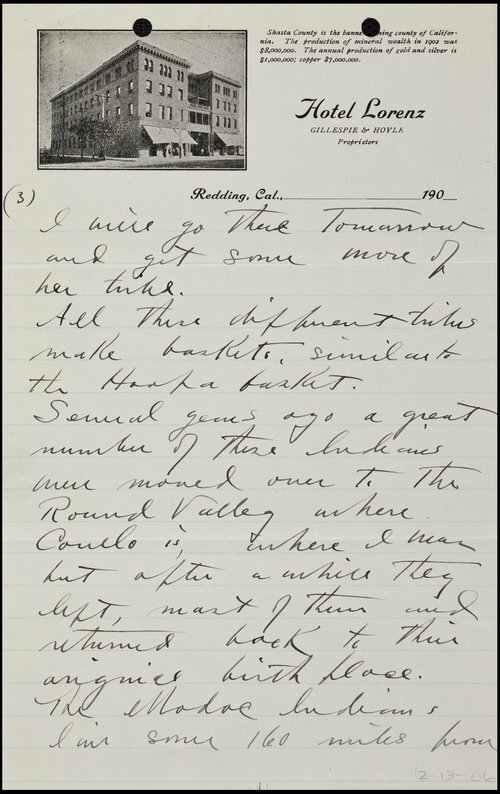 Shasta County is the banner mining county of Califor-
nia. The production of mineral wealth in 1902 was
$8,000,000. The annual production of gold and silver is
$1,000,000; copper $7,000,000.
Hotel Lorenz
GILLESPIE & HOYLE
Proprietors
Redding, Cal., 190
(3)
I will go there Tomorrow
and get some more of
her tribe.
All these different tribes
make baskets, similar to
the Hoopa basket.
Several years ago a great
number of these Indians
were moved over to the
Round Valley where
Covello is, where I was
but after a while they
left, most of them and
returned back to their
original birth place.
The Modoc Indians
live some 160 miles from
12-13-06